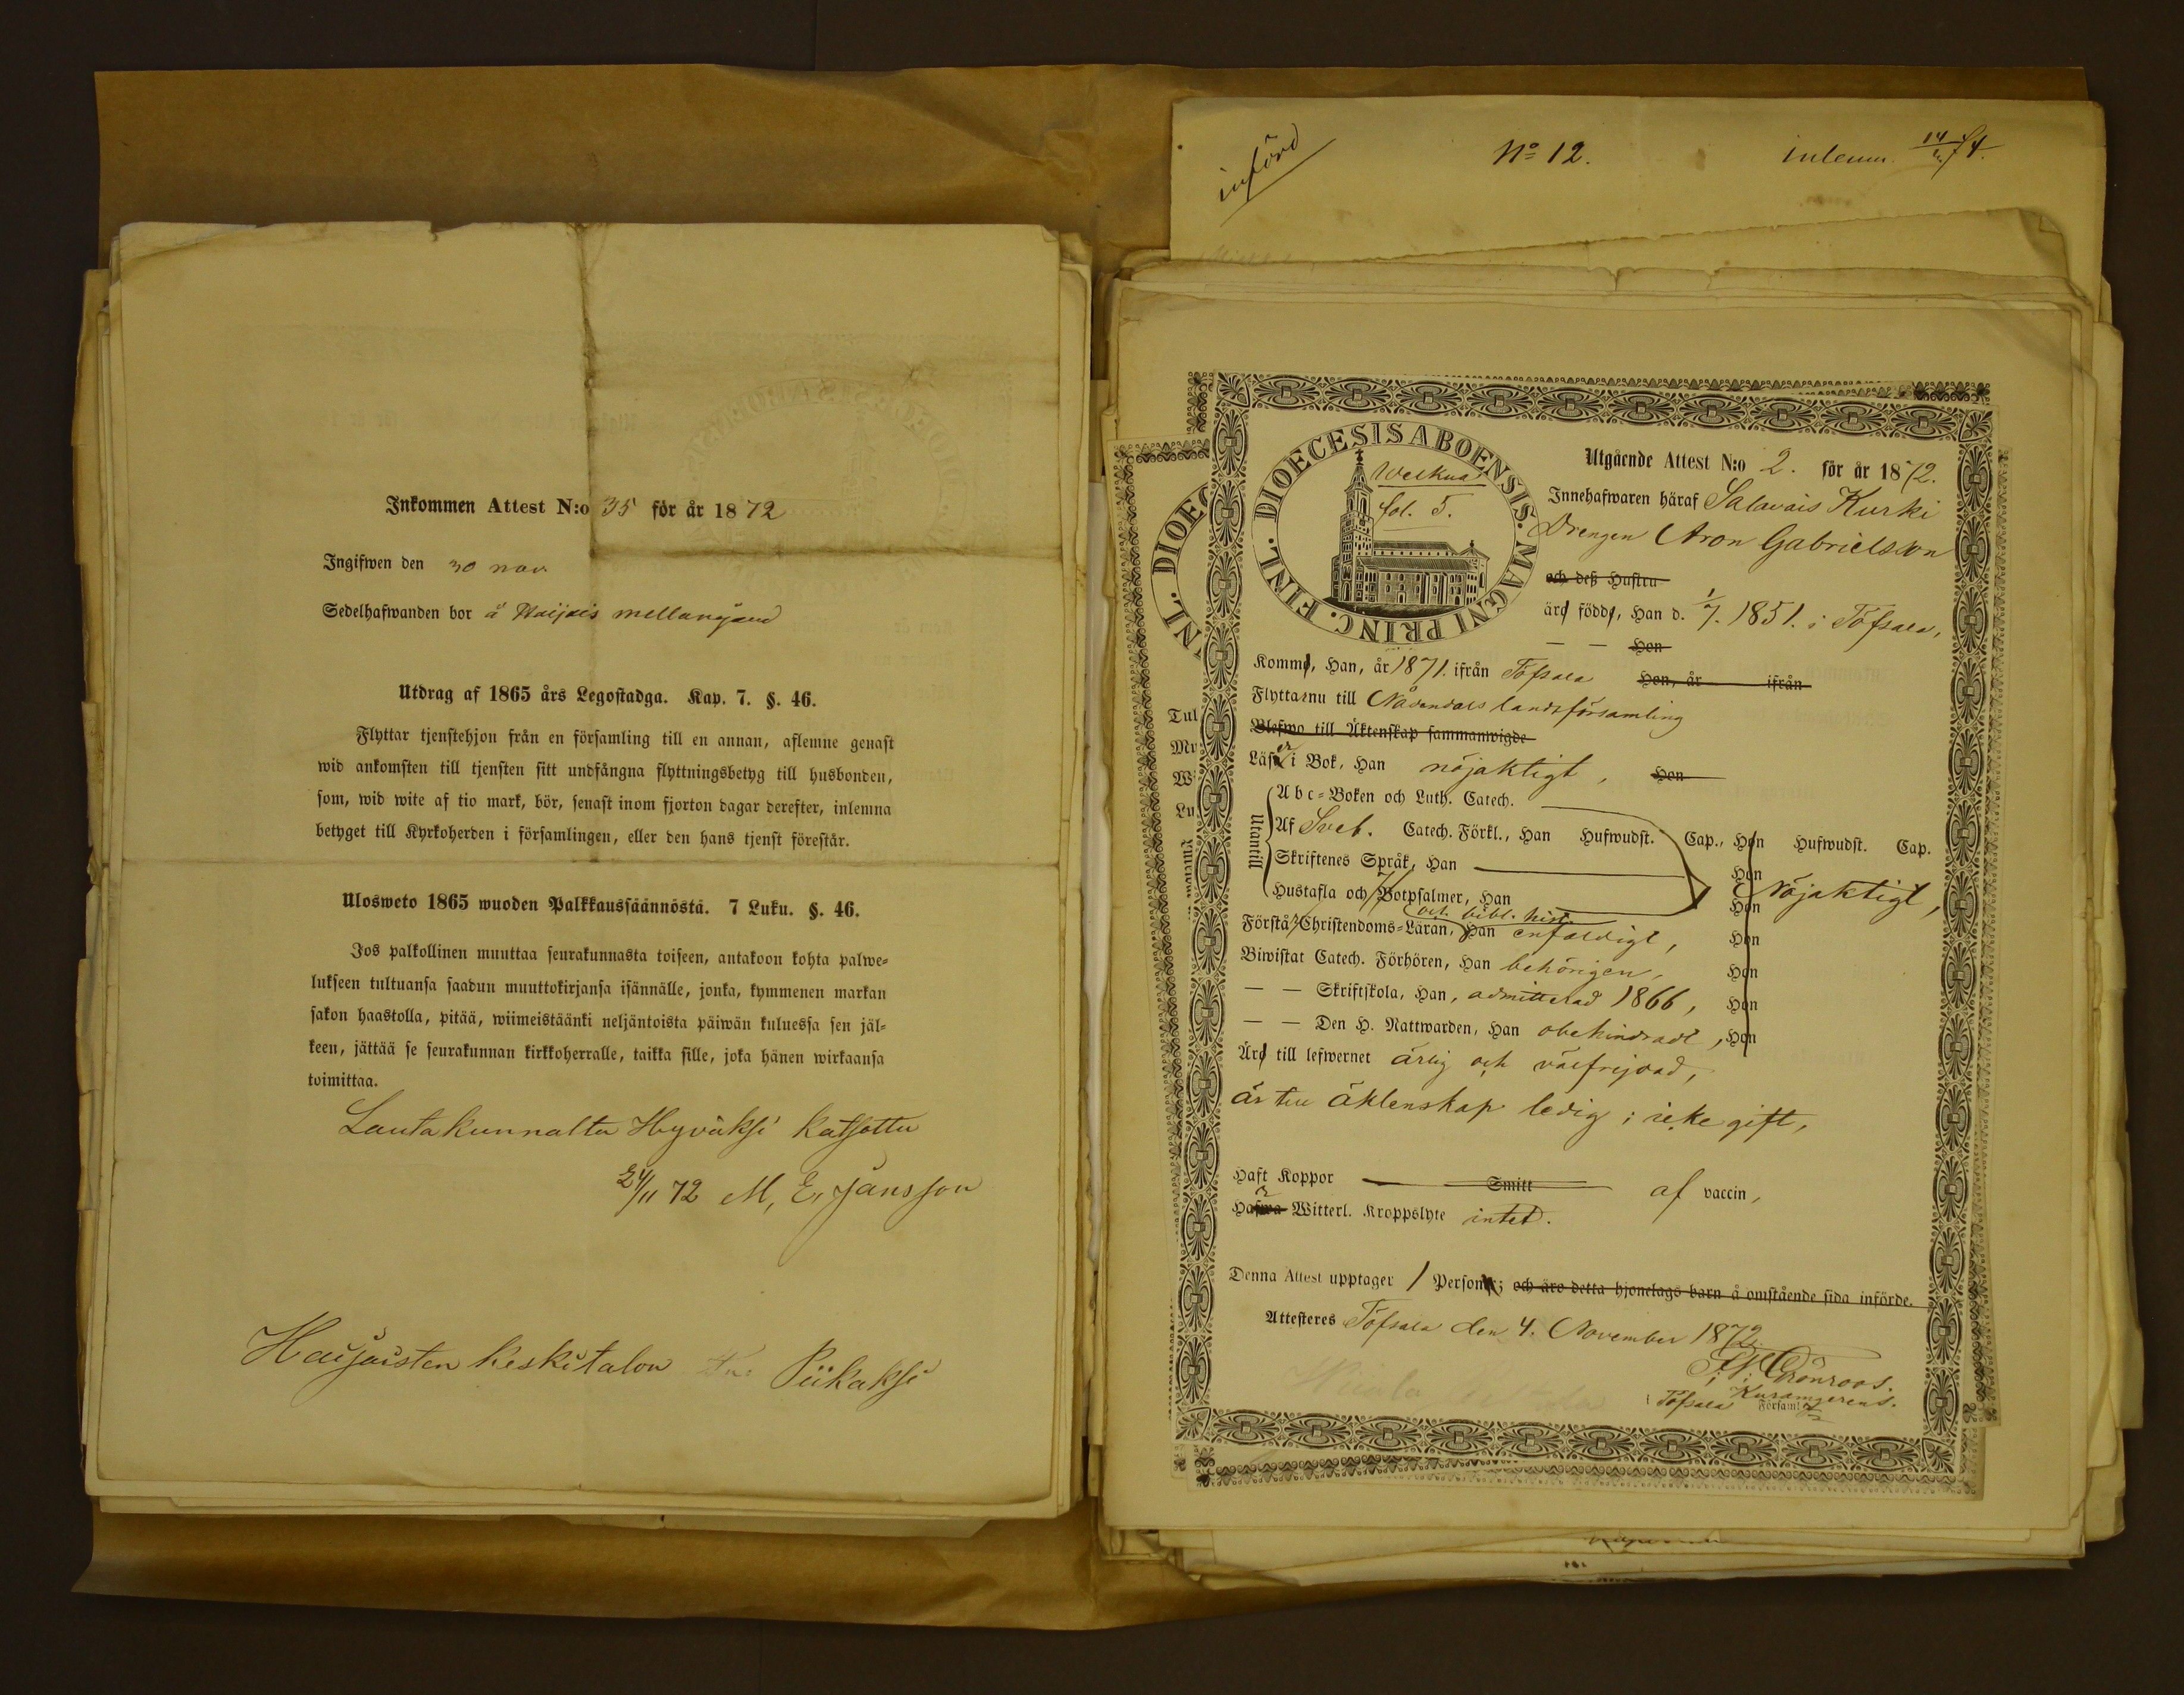 Inkommen Attest N:o 35 för år 1872
Ingifwen den 30 nov.
Sedelhafwanden bor å Haijais mellangård
Utdrag af 1865 års Legostadga. Kap. 7. §. 46.
Flyttar tjenstehjon från en församling till en annan, aflemne genast
wid ankomsten till tjensten sitt undfångna flyttningsbetyg till husbonden,
som, wid wite af tio mark, bör, senast inom fjorton dagar derefter, inlemna
betyget till Kyrkoherden i församlingen, eller den hans tjenst förestår.
Ulosweto 1865 wuoden Palkkaussäännöstä. 7 Luku. §. 46.
Jos palkollinen muuttaa seurakunnasta toiseen, antakoon kohta palwe-
lukseen tultuansa saadun muuttokirjansa isännälle, jonka, kymmenen markan
sakon haastolla, pitää, wiimeistäänki neljäntoista päiwän kuluessa sen jäl-
keen, jättää se seurakunnan kirkkoherralle, taikka sille, joka hänen wirkaansa
toimittaa.
Lautakunnalta Hyväksi katsottu
24/11 72 M, E, Jansson
Haijaisten keskitalon Piikaksi
införd
No 12.
inlemn. 14/ 74.
NL. DIOEC
Tul
Mu
W
Lu
DIOECESIS ABOENSIS. MAGNI PRINC. FINL.
Welkua
fol. 5.
Utgående Attest N:o 2. för år 1872.
Innehafwaren häraf Salavais Kurki
Drengen Aron Gabrielsson
och deß Hustru
äro födde, Han d. 1/7. 1851. i Töfsala,
— — Hon
Komme, Han, år 1871. ifrån Töfsala Hon, år ifrån
Flytta nu till Nådendals landsförsamling
Blefwo till Äktenskap sammanwigde
Läser i Bok, Han nöjaktigt, Hon
Utantill
Abc-Boken och Luth. Catech.
Af Sveb. Catech. Förkl., Han Hufwudst. Cap., Hon Hufwudst. Cap.
Skriftenes Språk, Han Hon
Hustafla och 7 Botpsalmer, Han Hon nöjaktigt,
och bibl. hist.
Förstår Christendoms-Läran, Han enfaldigt, Hon
Biwistat Catech. Förhören, Han behörigen, Hon
— — Skriftskola, Han, admitterad 1866, Hon
— — Den H. Nattwarden, Han obehindradt, Hon
Äro till lefwernet ärlig och välfrejdad,
är till äktenskap ledig; icke gift,
Haft Koppor Smitt af vaccin,
Hafwa Witterl. Kroppslyte intet.
Denna Attest upptager 1 Person; och äro detta hjonelags barn å omstående sida införde.
Attesteres Töfsala den 4. November 1872
Grönroos.
Töfsala Församl.